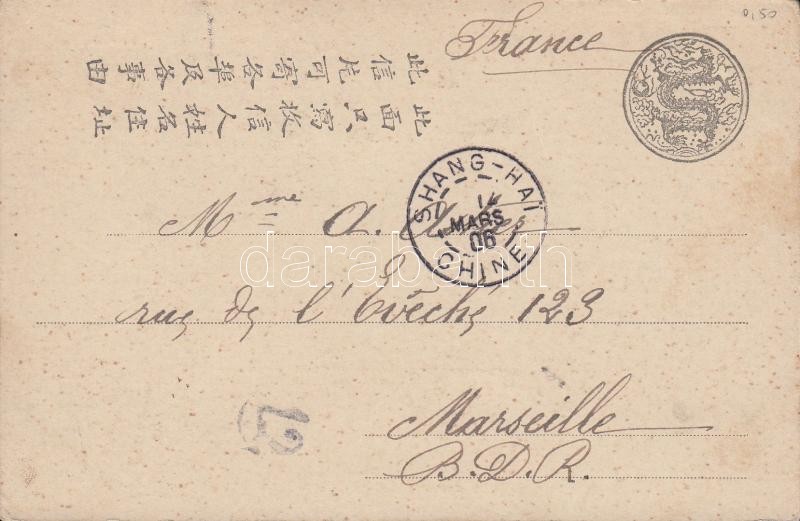 0,50
France
此面只寫收信人姓名住址
此信片可寄各埠及各事由
SHANG-HAÏ
MARS
06
CHINE
Mme A.
darabanth
rue de l'Evêché 123
Marseille
B.D.R.